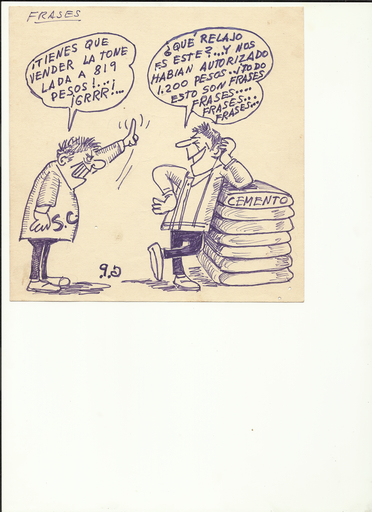 FRASES
¡TIENES QUE
VENDER LA TONE
LADA A 819
PESOS!...¡
¡GRRR!...
¿QUÉ RELAJO
ES ESTE?...Y NOS
HABIAN AUTORIZADO
1.200 PESOS..¡TODO
ESTO SON FRASES
FRASES....
FRASES...
FRASES...
CEMENTO
S.C